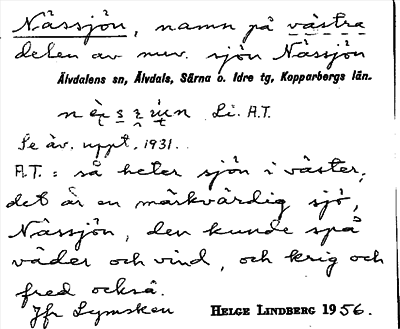 Nässjön, namn på västra
delen av nuv. sjön Nässjön
Älvdalens sn, Älvdals, Särna o. Idre tg, Kopparbergs län.
Li. A.T.
Se äv. uppt. 1931.
A.T.: så heter sjön i väster,
det är en märkvärdig sjö,
Nässjön, den kunde spå
väder och vind, och krig och
fred också.
Jfr Lymsken
HELGE LINDBERG 1956.